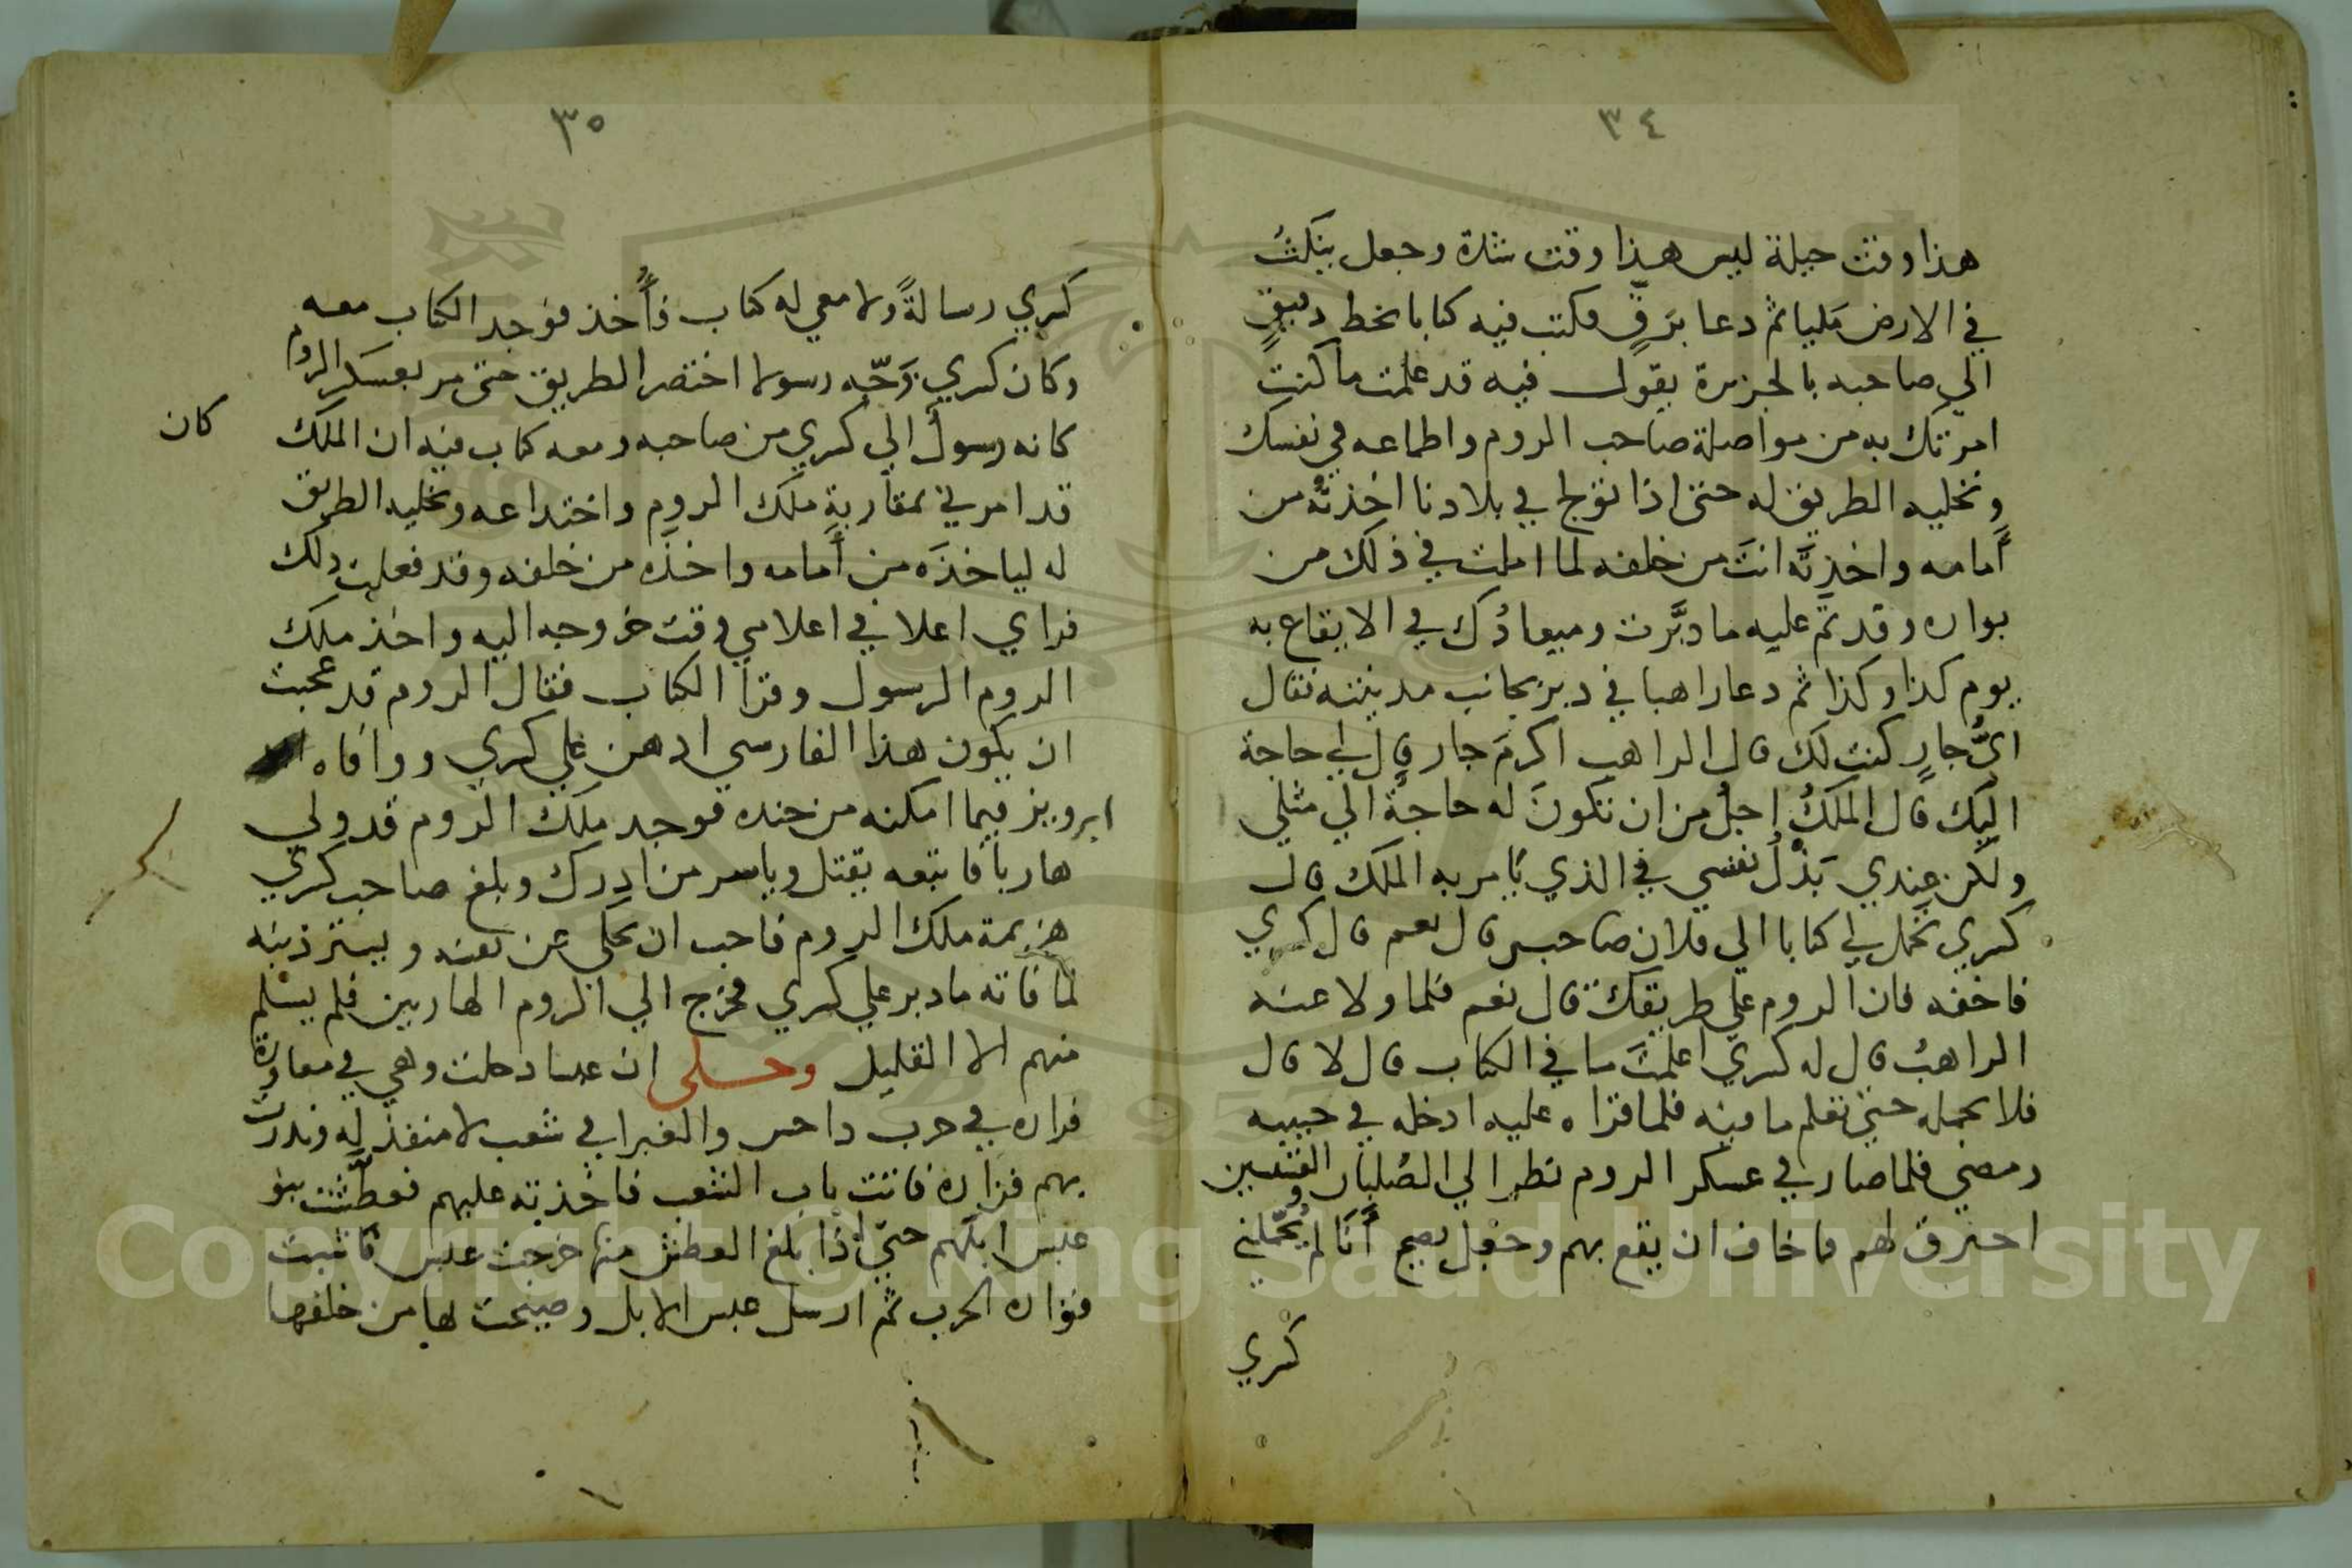 ٣٤
هذا وقت حيلة ليس هذا وقت شدة وجعل ينكث
في الارض مليا ثم دعا برق فكتب فيه كتابا بخط دقيق
الي صاحبه بالجزيرة يقول فيه قد علمت ما كنت
امرتك به من مواصلة صاحب الروم واطماعه في نفسك
وتخليه الطريق له حتى اذا تولج في بلادنا اخذته من
أمامه واخذته انت من خلفه لما املت في ذلك من
بواره وقد تم عليه ما دبرت وميعادك في الايقاع به
يوم كذا وكذا ثم دعا راهبا في دير بجانب مدينته فقال
اي جار كنت لك قال الراهب اكرم جار قال لي حاجة
اليك قال الملك اجل من ان تكون له حاجة الي مثلي
ولكن عندي بذل نفسي في الذي يامر به الملك قال
كسري تحمل لي كتابا الي فلان صاحبي قال نعم قال كسري
فاخفه فان الروم علي طريقك قال نعم فلما ولا عنه
الراهب قال له كسري اعلمت ما في الكتاب قال لا قال
فلا تحمله حتي تعلم ما فيه فلما قراه عليه ادخله في جيبه
ومضي فلما صار في عسكر الروم نظر الي الصلبان والقسيسين
احترق لهم فخاف ان يقع بهم وجعل يصيح أنا لم يحملني
كسري
٣٥
كسري رسالة ولا معي له كتاب فأخذ فوجد الكتاب معه
وكان كسري وجه رسولا اختصر الطريق حتى مر بعسكر الروم
كانه رسول الي كسري من صاحبه ومعه كتاب فيه ان الملك
كان
قد امرني بمقاربة ملك الروم واختداعه وتخليه الطريق
له لياخذه من أمامه واخذه من خلفه وقد فعلت ذلك
فراي اعلا في اعلامي وقت خروجه اليه واخذ ملك
الروم الرسول وقرا الكتاب فقال الروم قد عجبت
ان يكون هذا الفارسي ادهن علي كسري ووافاه
ابرويز فيما امكنه من جنده فوجد ملك الروم قد ولي
هاربا فاتبعه يقتل وياسر من ادرك وبلغ صاحب كسري
هزيمة ملك الروم فاحب ان يحلي عن نفسه ويستر ذنبه
لما فاته ما دبر علي كسري فخرج الي الروم الهاربين فلم يسلم
منهم الا القليل وحكى ان عبسا دخلت وهي في معاورة
فزاره في حرب داحس والغبرا في شعب لا منفذ له ونذرت
بهم فزاره فاتت باب الشعب فاخذته عليهم فعطشت بنو
عبس ابلهم حتي اذا بلغ العطش منها خرجت عبس فانشبت
فزاره الحرب ثم ارسل عبس الابل وصيحت بها من خلفها